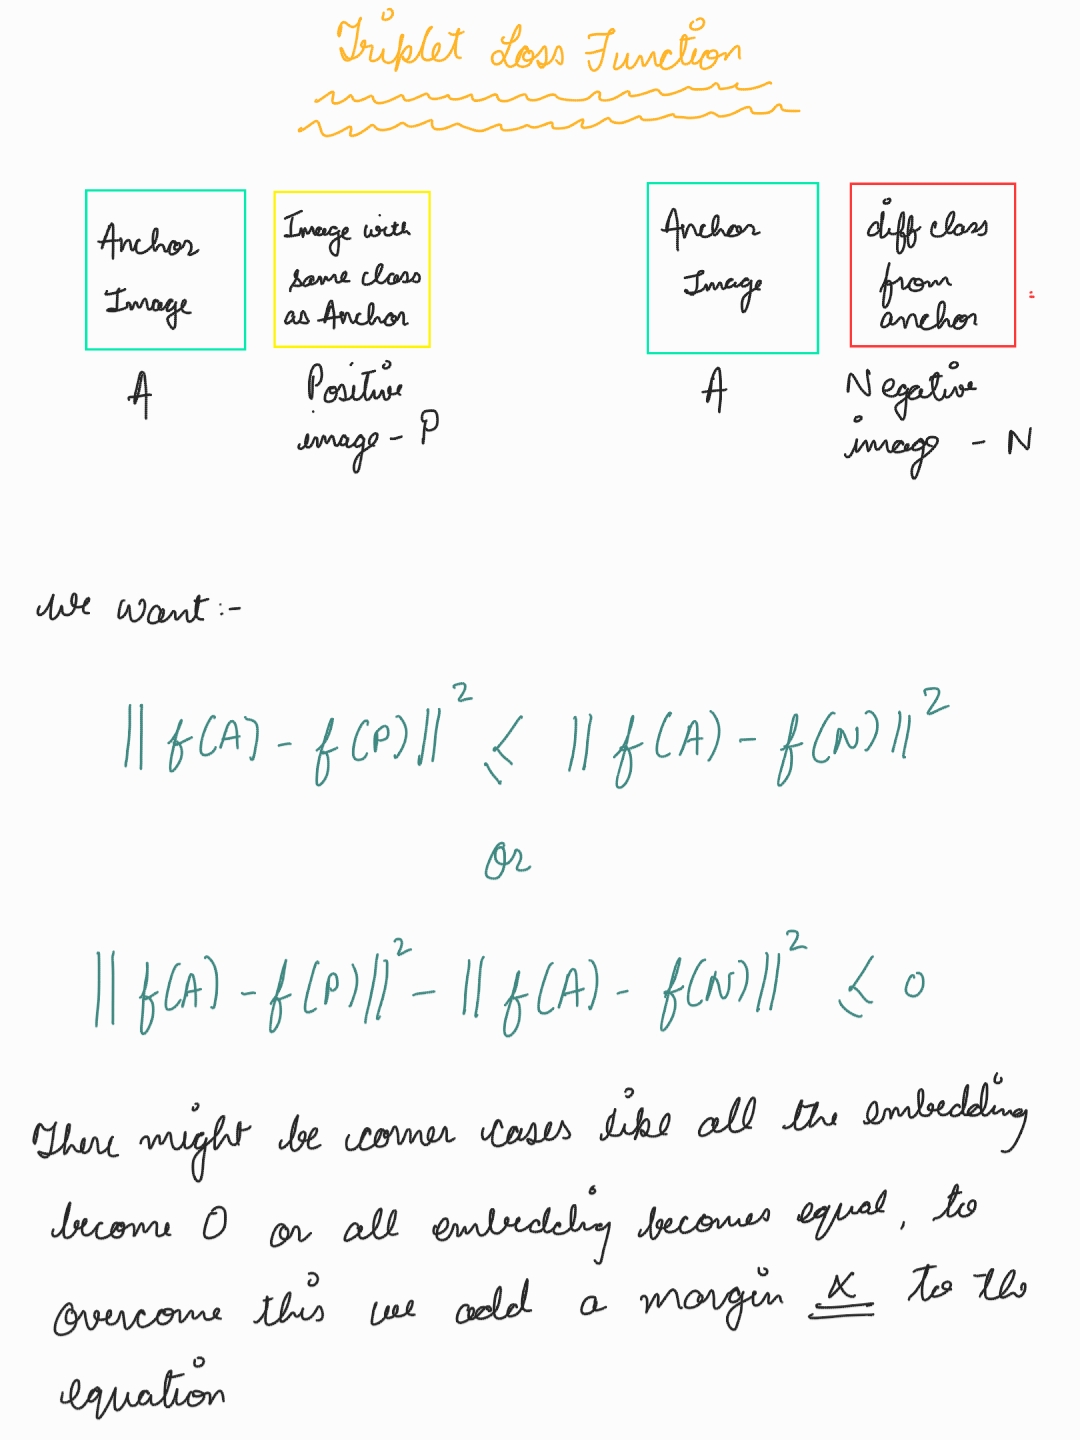 Triplet Loss Function
Anchor
Image
Image with
same class
as Anchor
Anchor
Image
diff class
from
anchor
A
Positive
image - P
A
Negative
image - N
We want :-
|| f(A) - f(P) ||² ≤ || f(A) - f(N) ||²
Or
|| f(A) - f(P) ||² - || f(A) - f(N) ||² ≤ 0
There might be corner cases like all the embedding
become 0 or all embedding becomes equal, to
overcome this we add a margin α to the
equation